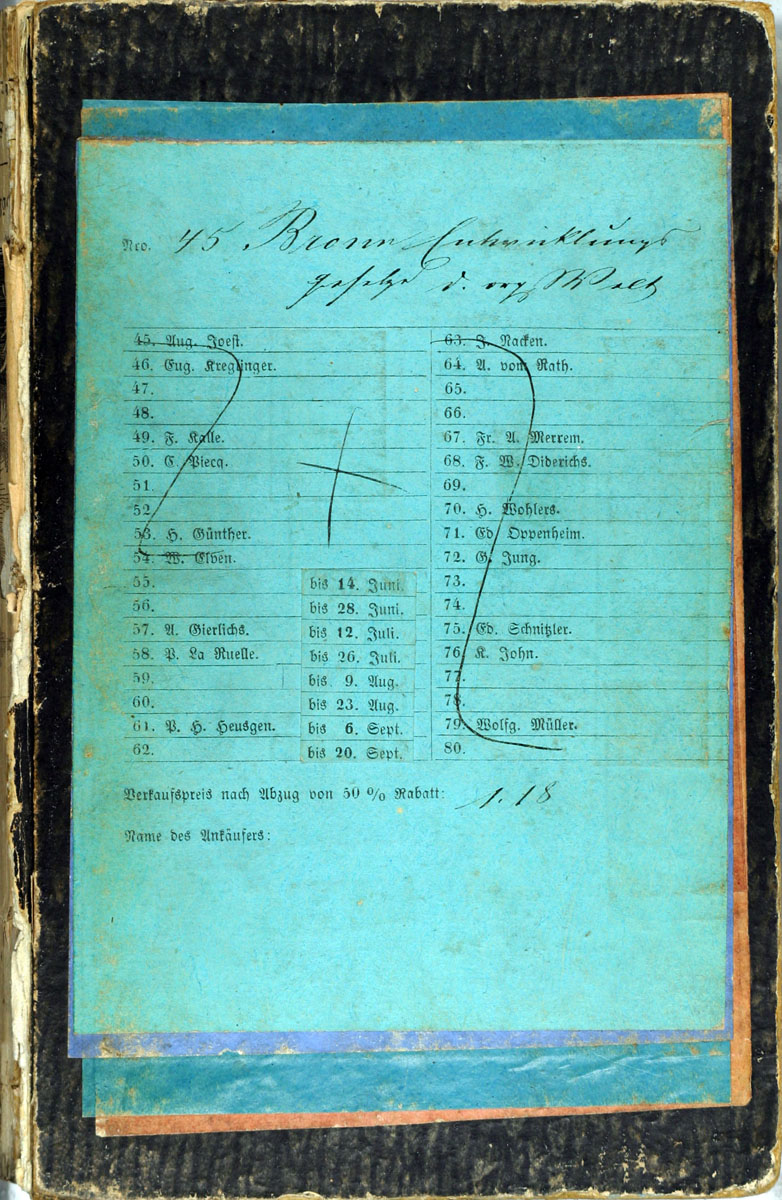 Nro. 45 Bronn Entwicklungs
gesetze d. org Welt
45. Aug. Joest.
46. Eug. Kreglinger.
47.
48.
49. F. Kalle.
50. C. Piecq.
51.
52.
53. H. Günther.
54. W. Elven.
55.
56.
57. A. Gierlichs.
58. P. La Ruelle.
59.
60.
61. P. H. Heusgen.
62.
bis 14. Juni.
bis 28. Juni.
bis 12. Juli.
bis 26. Juli.
bis 9. Aug.
bis 23. Aug.
bis 6. Sept.
bis 20. Sept.
63. J. Nacken.
64. A. vom Rath.
65.
66.
67. Fr. A. Merrem.
68. F. W. Diderichs.
69.
70. H. Wohlers.
71. Ed. Oppenheim.
72. G. Jung.
73.
74.
75. Ed. Schnitzler.
76. K. John.
77.
78.
79. Wolfg. Müller.
80.
Verkaufspreis nach Abzug von 50 % Rabatt: 1.18
Name des Ankäufers: